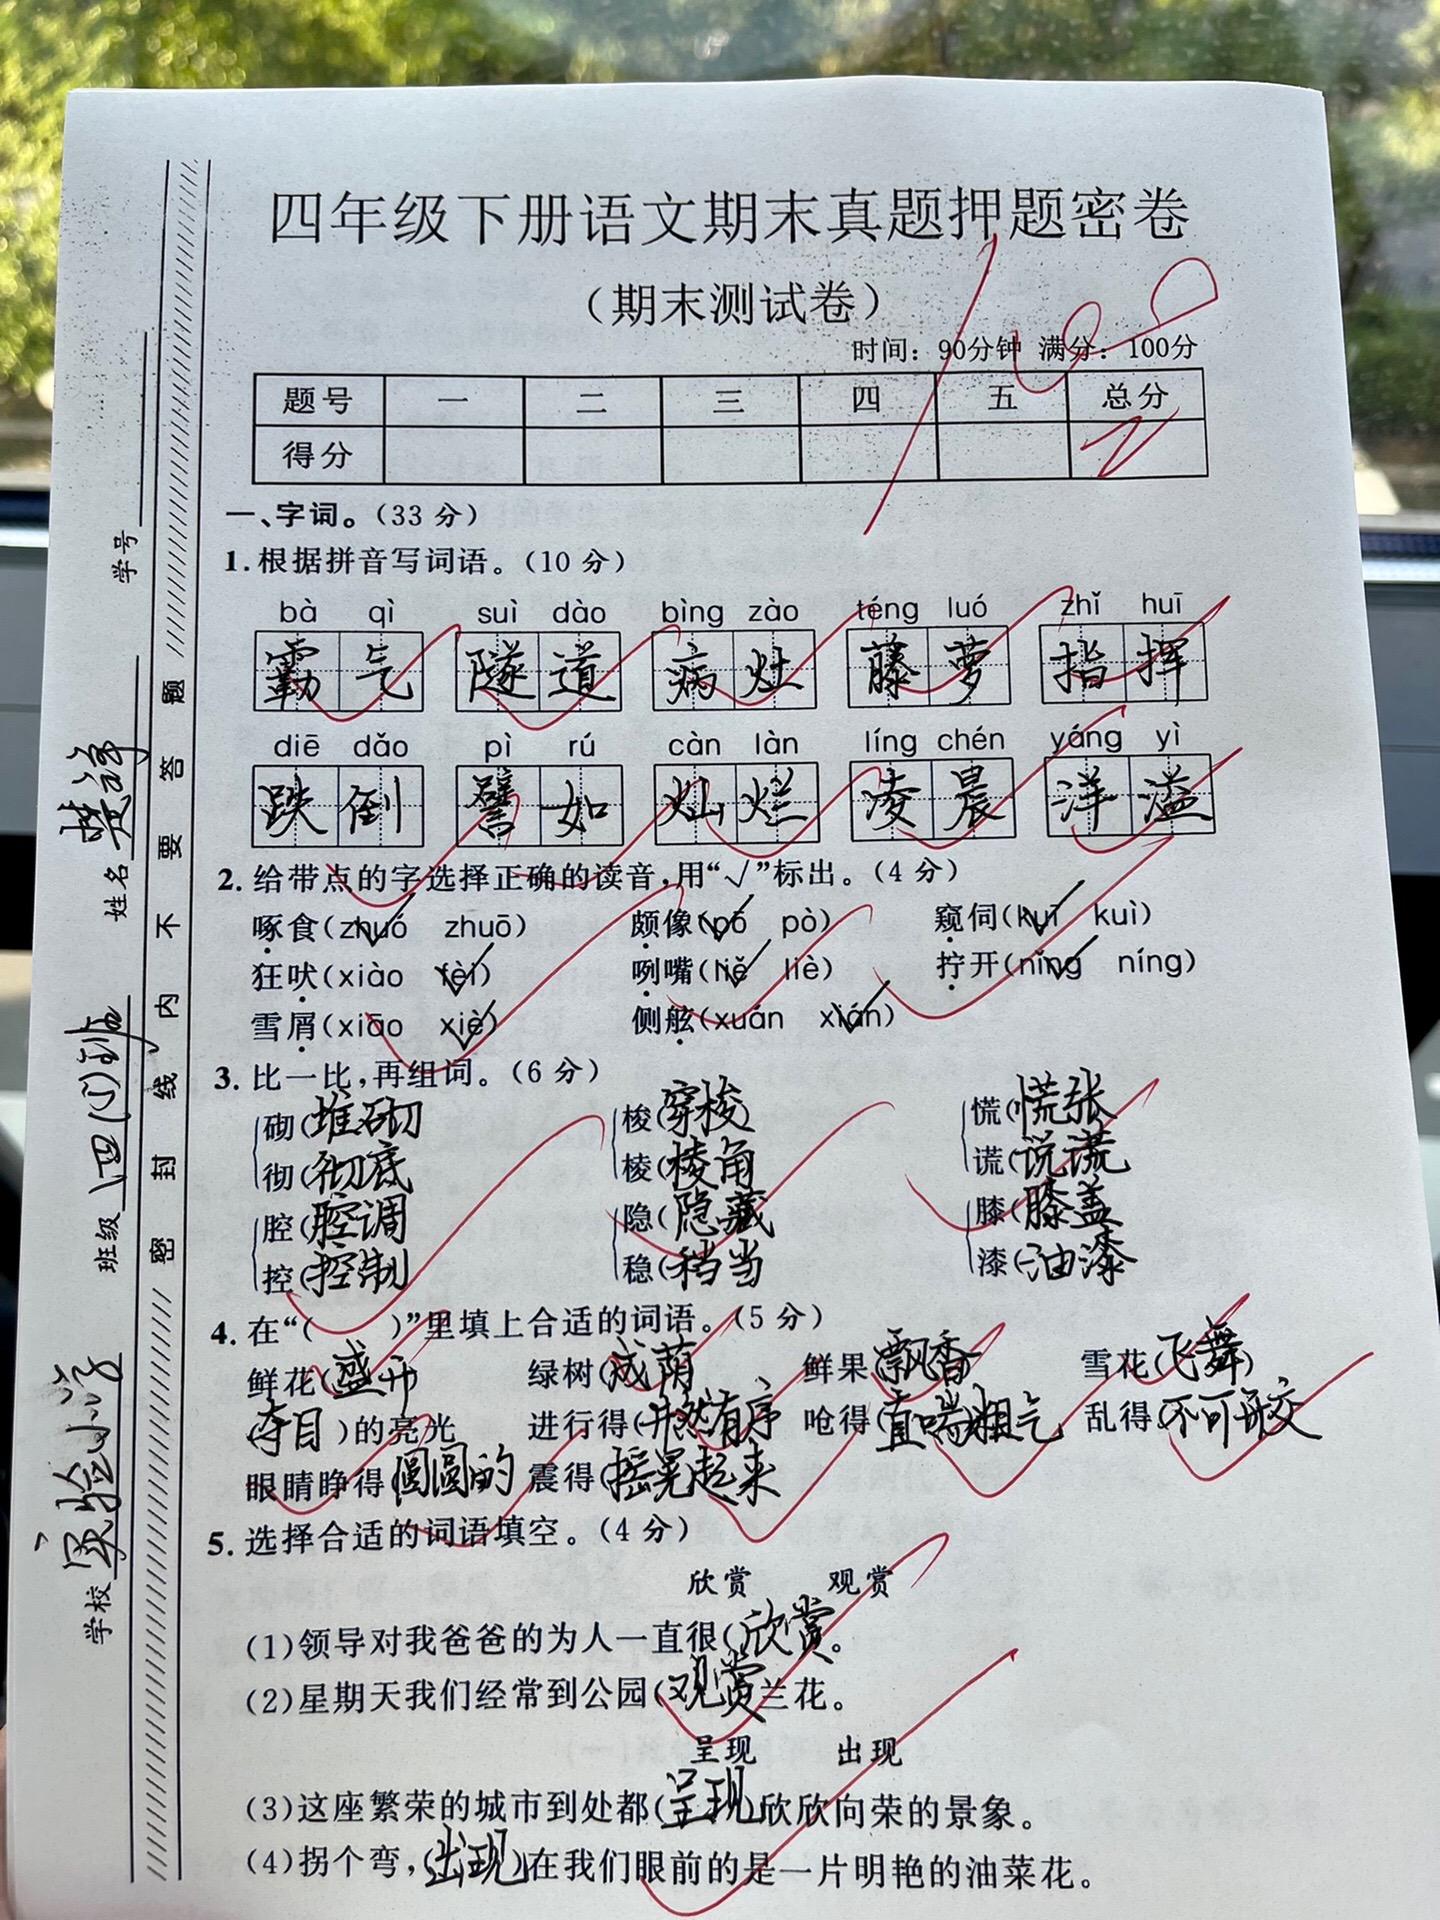 四年级下册语文期末真题押题密卷
(期末测试卷)
100
时间：90分钟 满分：100分
题号 一 二 三 四 五 总分
得分
一、字词。(33 分)
1.根据拼音写词语。(10 分)
bà qì suì dào bìng zào téng luó zhǐ huī
霸气 隧道 病灶 藤萝 指挥
diē dǎo pì rú càn làn líng chén yáng yì
跌倒 譬如 灿烂 凌晨 洋溢
2.给带点的字选择正确的读音,用“√”标出。(4 分)
啄食(zhuó√ zhuō) 颇像(pō√ pò) 窥伺(kuī√ kuì)
狂吠(xiào fèi√) 咧嘴(liě√ liè) 拧开(nǐng√ níng)
雪屑(xiāo xiè√) 侧舷(xuán xián√)
3.比一比,再组词。(6 分)
砌(堆砌 梭(穿梭 慌(慌张
彻(彻底 棱(棱角 谎(说谎
腔(腔调 隐(隐藏 膝(膝盖
控(控制 稳(稳当 漆(油漆
4.在“( )”里填上合适的词语。(5 分)
鲜花(盛开 绿树(成荫 鲜果(飘香 雪花(飞舞)
夺目)的亮光 进行得(井然有序 呛得(直喘粗气 乱得(不可开交
眼睛睁得(圆圆的 震得(摇晃起来
5.选择合适的词语填空。(4 分)
欣赏 观赏
(1)领导对我爸爸的为人一直很(欣赏。
(2)星期天我们经常到公园(观赏兰花。
呈现 出现
(3)这座繁荣的城市到处都(呈现)欣欣向荣的景象。
(4)拐个弯,(出现)在我们眼前的是一片明艳的油菜花。
学校 实验小学 班级 四(1)班 姓名 楚祥 学号
密封线内不要答题